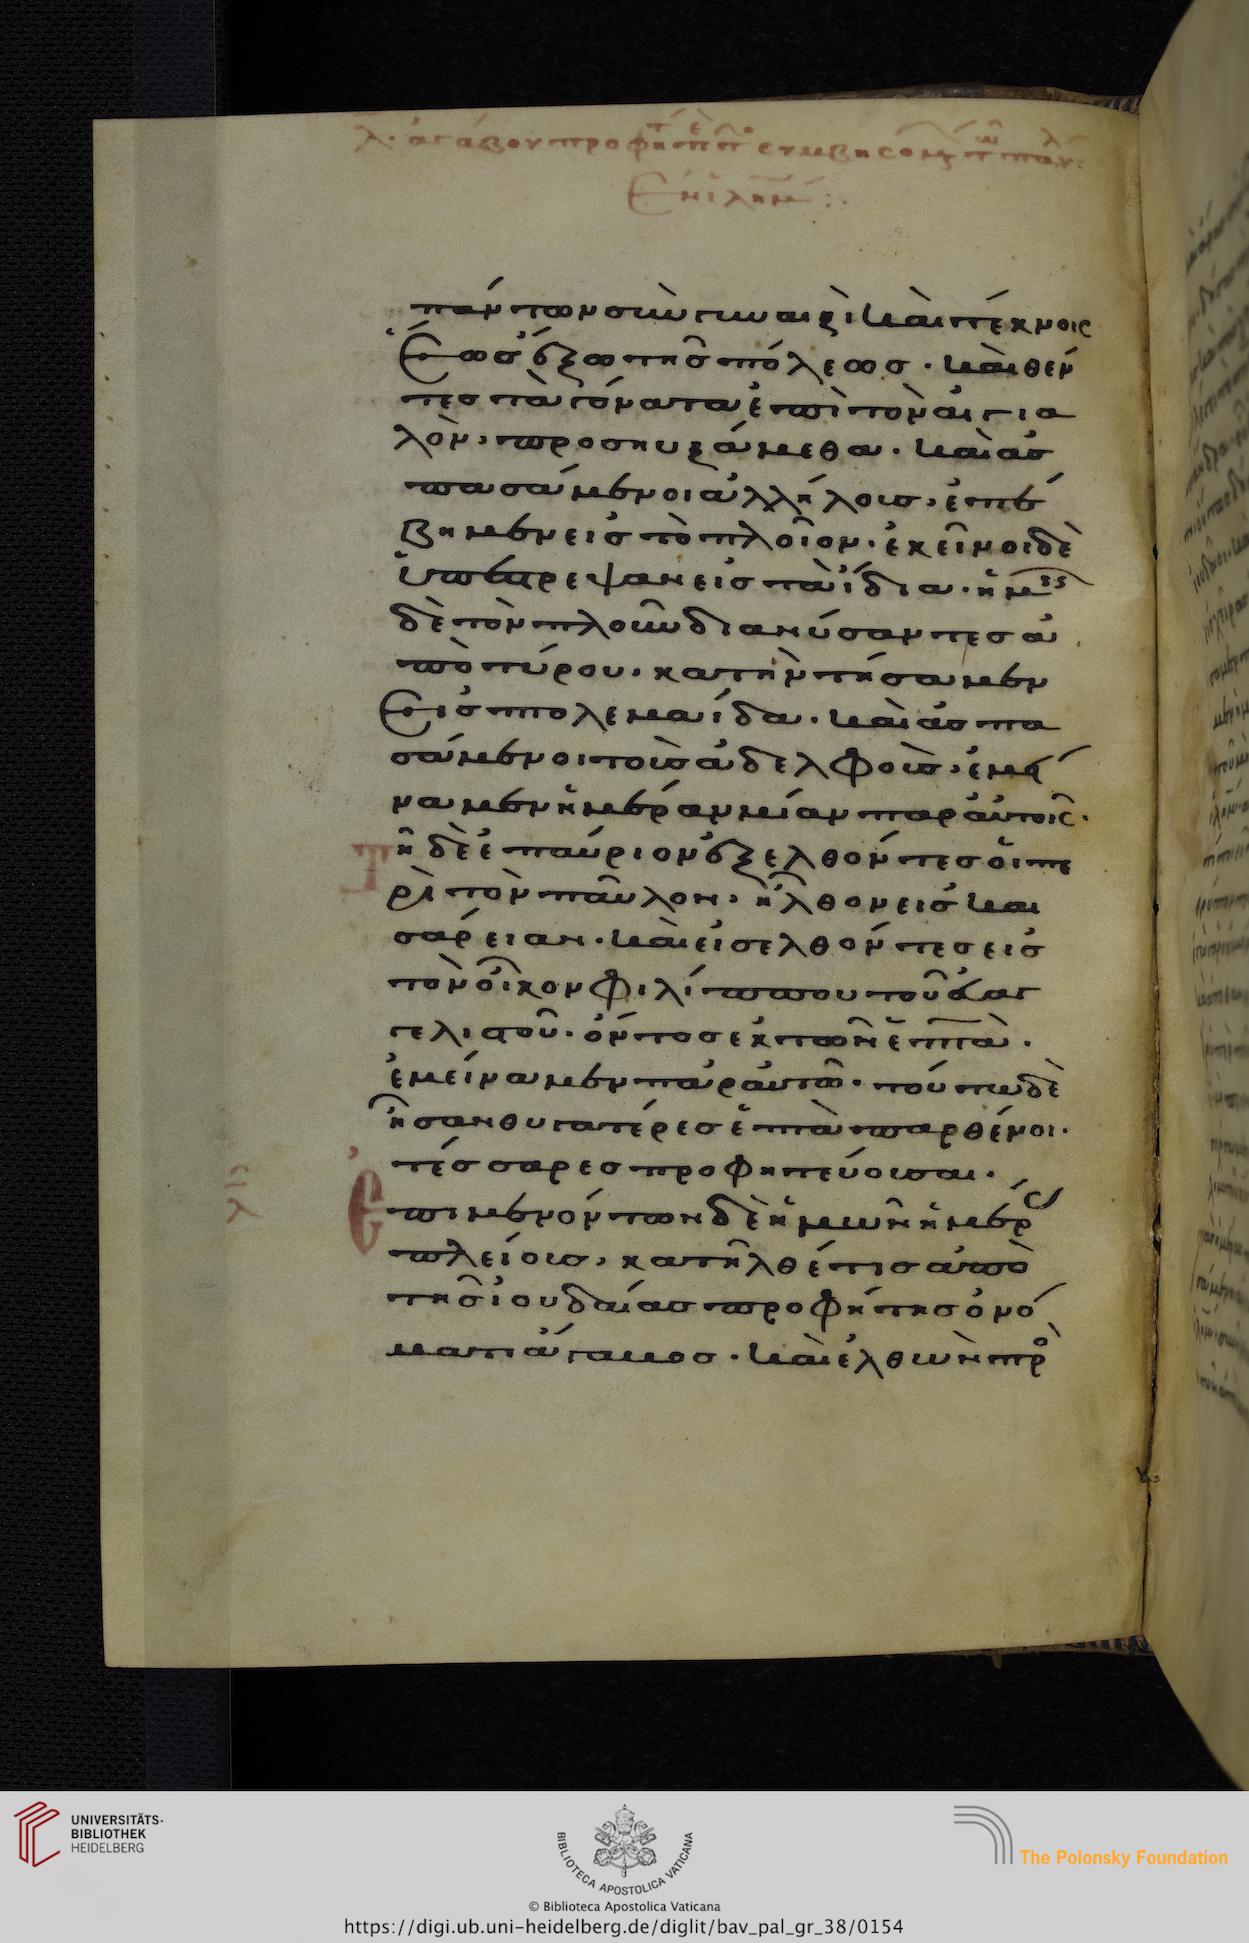 λ· ἀγάβου προφητ πε συμβησομ τ παύλ:
Ἐν ἱλημ:
πάντων σὺν γυναιξὶ καὶ τέκνοις
ἕως ἔξω τῆς πόλεως· καὶ θέν
τες τὰ γόνατα ἐπὶ τὸν αἰγια
λὸν, προσηυξάμεθα· καὶ ἀσ
πασάμενοι ἀλλήλοις, ἐπέ
βημεν εἰς τὸ πλοῖον· ἐκεῖνοι δὲ
ὑπέστρεψαν εἰς τὰ ἴδια· ἡμεῖς
δὲ τὸν πλοῦν διανύσαντες ἀ
πὸ τύρου· κατηντήσαμεν
εἰς πτολεμαίδα· καὶ ἀσπα
σάμενοι τοὺς ἀδελφοὺς, ἐμεί
ναμεν ἡμέραν μίαν παρ αὐτοῖς·
Τῆ δὲ ἐπαύριον ἐξελθόντες οἱ πε
ρὶ τὸν παῦλον, ἦλθον εἰς και
σάρειαν· καὶ εἰσελθόντες εἰς
τὸν οἶκον φιλίππου τοῦ εὐαγ
γελιστοῦ· ὄντος ἐκ τῶν ἑπτὰ·
ἐμείναμεν παρ αὐτῶ· τούτω δὲ
ἦσαν θυγατέρες ἑπτὰ παρθένοι·
τέσσαρες προφητεύουσαι·
λ
Ἐπιμενόντων δὲ ἡμῶν ἡμέρας
πλείους, κατῆλθέ τις ἀπὸ
τῆς ἰουδαίας προφήτης ὀνό
ματι ἄγαμος· καὶ ἐλθὼν πρὸς
UNIVERSITÄTS-
BIBLIOTHEK
HEIDELBERG
BIBLIOTECA APOSTOLICA VATICANA
The Polonsky Foundation
© Biblioteca Apostolica Vaticana
https://digi.ub.uni-heidelberg.de/diglit/bav_pal_gr_38/0154